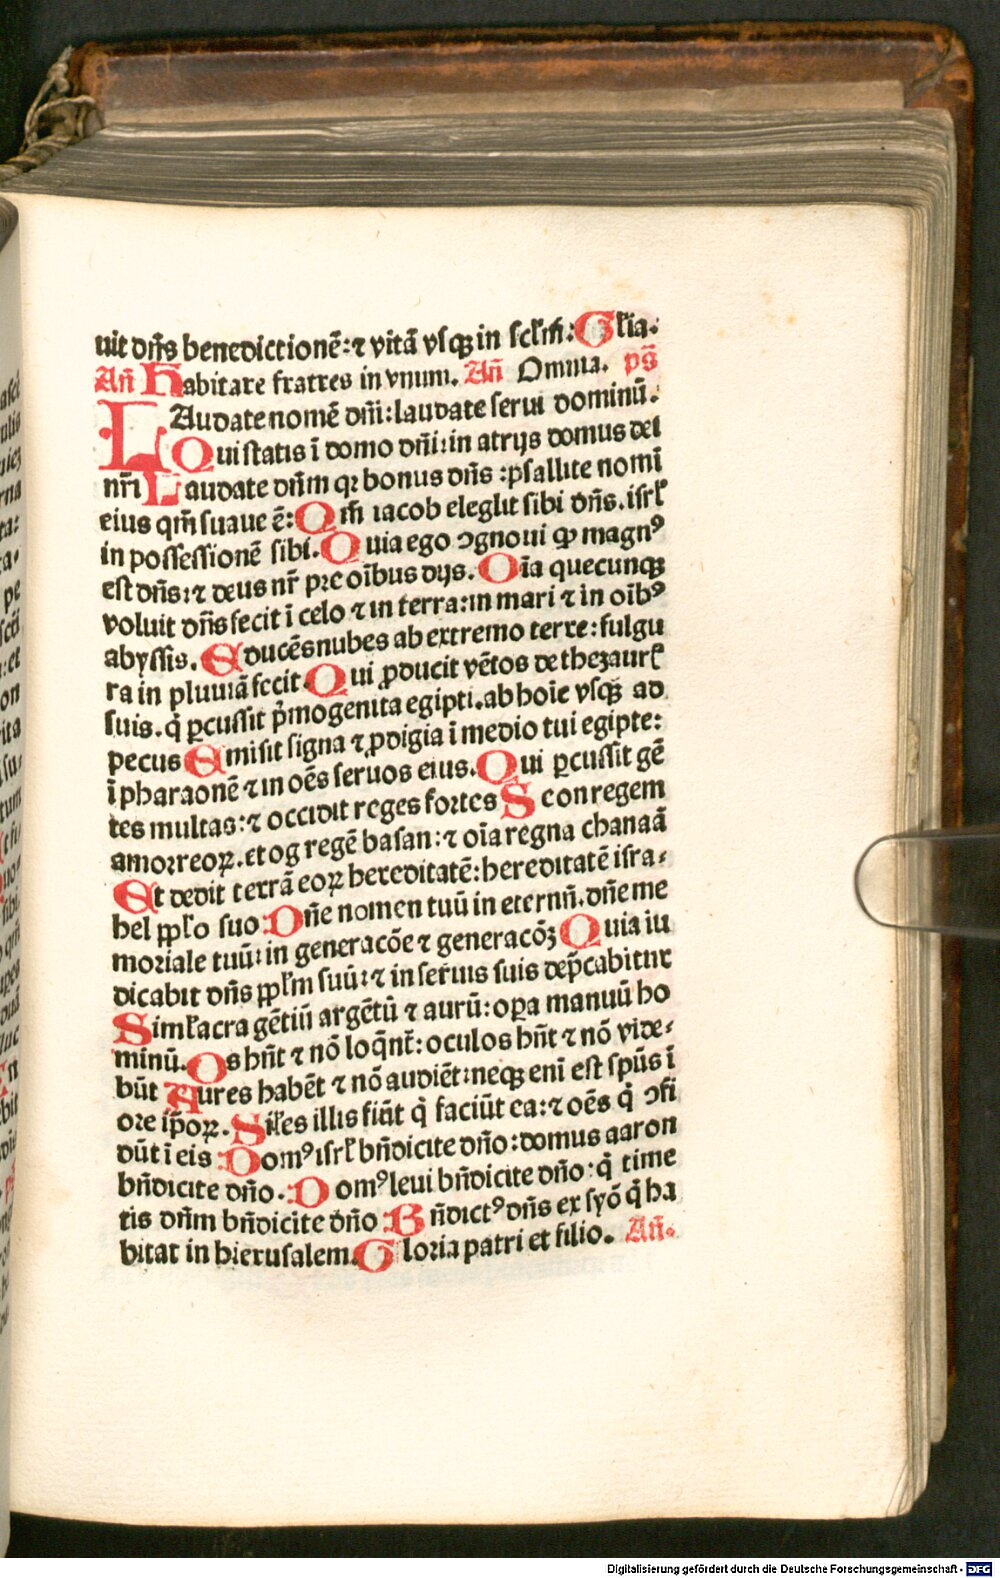 uit dn̄s benedictionē: ⁊ vitā vsqꝫ in sclm̄: Glīa.
An̄ Habitare fratres in vnum. An̄ Omnia. pš
LAudate nomē dn̄i: laudate serui dominū.
Qui statis ī domo dn̄i: in atrijs domus dei
nr̄i Laudate dn̄m qꝛ bonus dn̄s: psallite nomī
eius qm̄ suaue ē: Qm̄ iacob elegit sibi dn̄s. isrl̄
in possessionē sibi. Quia ego ꝯgnoui qꝫ magnꝰ
est dn̄s: ⁊ deus nr̄ pre oībus dijs. Oīa quecunqꝫ
voluit dn̄s fecit ī celo ⁊ in terra: in mari ⁊ in oībꝰ
abyssis. Educēs nubes ab extremo terre: fulgu
ra in pluuiā fecit Qui ꝓducit vētos de thezaurꝭ
suis. q̄ ꝑcussit pīmogenita egipti. ab hoīe vsqꝫ ad
pecus Emisit signa ⁊ ꝓdigia ī medio tui egipte:
ī pharaonē ⁊ in oēs seruos eius. Qui ꝑcussit gē
tes multas: ⁊ occidit reges fortes Seon regem
amorreoꝝ. et og regē basan: ⁊ oīa regna chanaā
Et dedit terrā eoꝝ hereditatē: hereditatē isra⸗
hel pp̄lo suo: Dn̄e nomen tuū in eternū. dn̄e me
moriale tuū: in generacōe ⁊ generacōꝫ Quia iu
dicabit dn̄s pp̄lm suū: ⁊ in seruis suis dep̄cabitur
Siml̄acra gētiū argētū ⁊ aurū: oꝑa manuū ho
minū. Os hn̄t ⁊ nō loq̄nt̄: oculos hn̄t ⁊ nō vide⸗
būt Aures habēt ⁊ nō audiēt: neqꝫ enī est spūs ī
ore ip̄oꝝ. Sil̄es illis fiāt q̄ faciūt ea: ⁊ oēs q̄ ꝯfi
dūt ī eis Domꝰ isrl̄ bn̄dicite dn̄o: domus aaron
bn̄dicite dn̄o. Domꝰ leui bn̄dicite dn̄o: q̄ time
tis dn̄m bn̄dicite dn̄o Bn̄dictꝰ dn̄s ex syō q̄ ha
bitat in hierusalem. Gloria patri et filio. An̄.
Digitalisierung gefördert durch die Deutsche Forschungsgemeinschaft - DFG